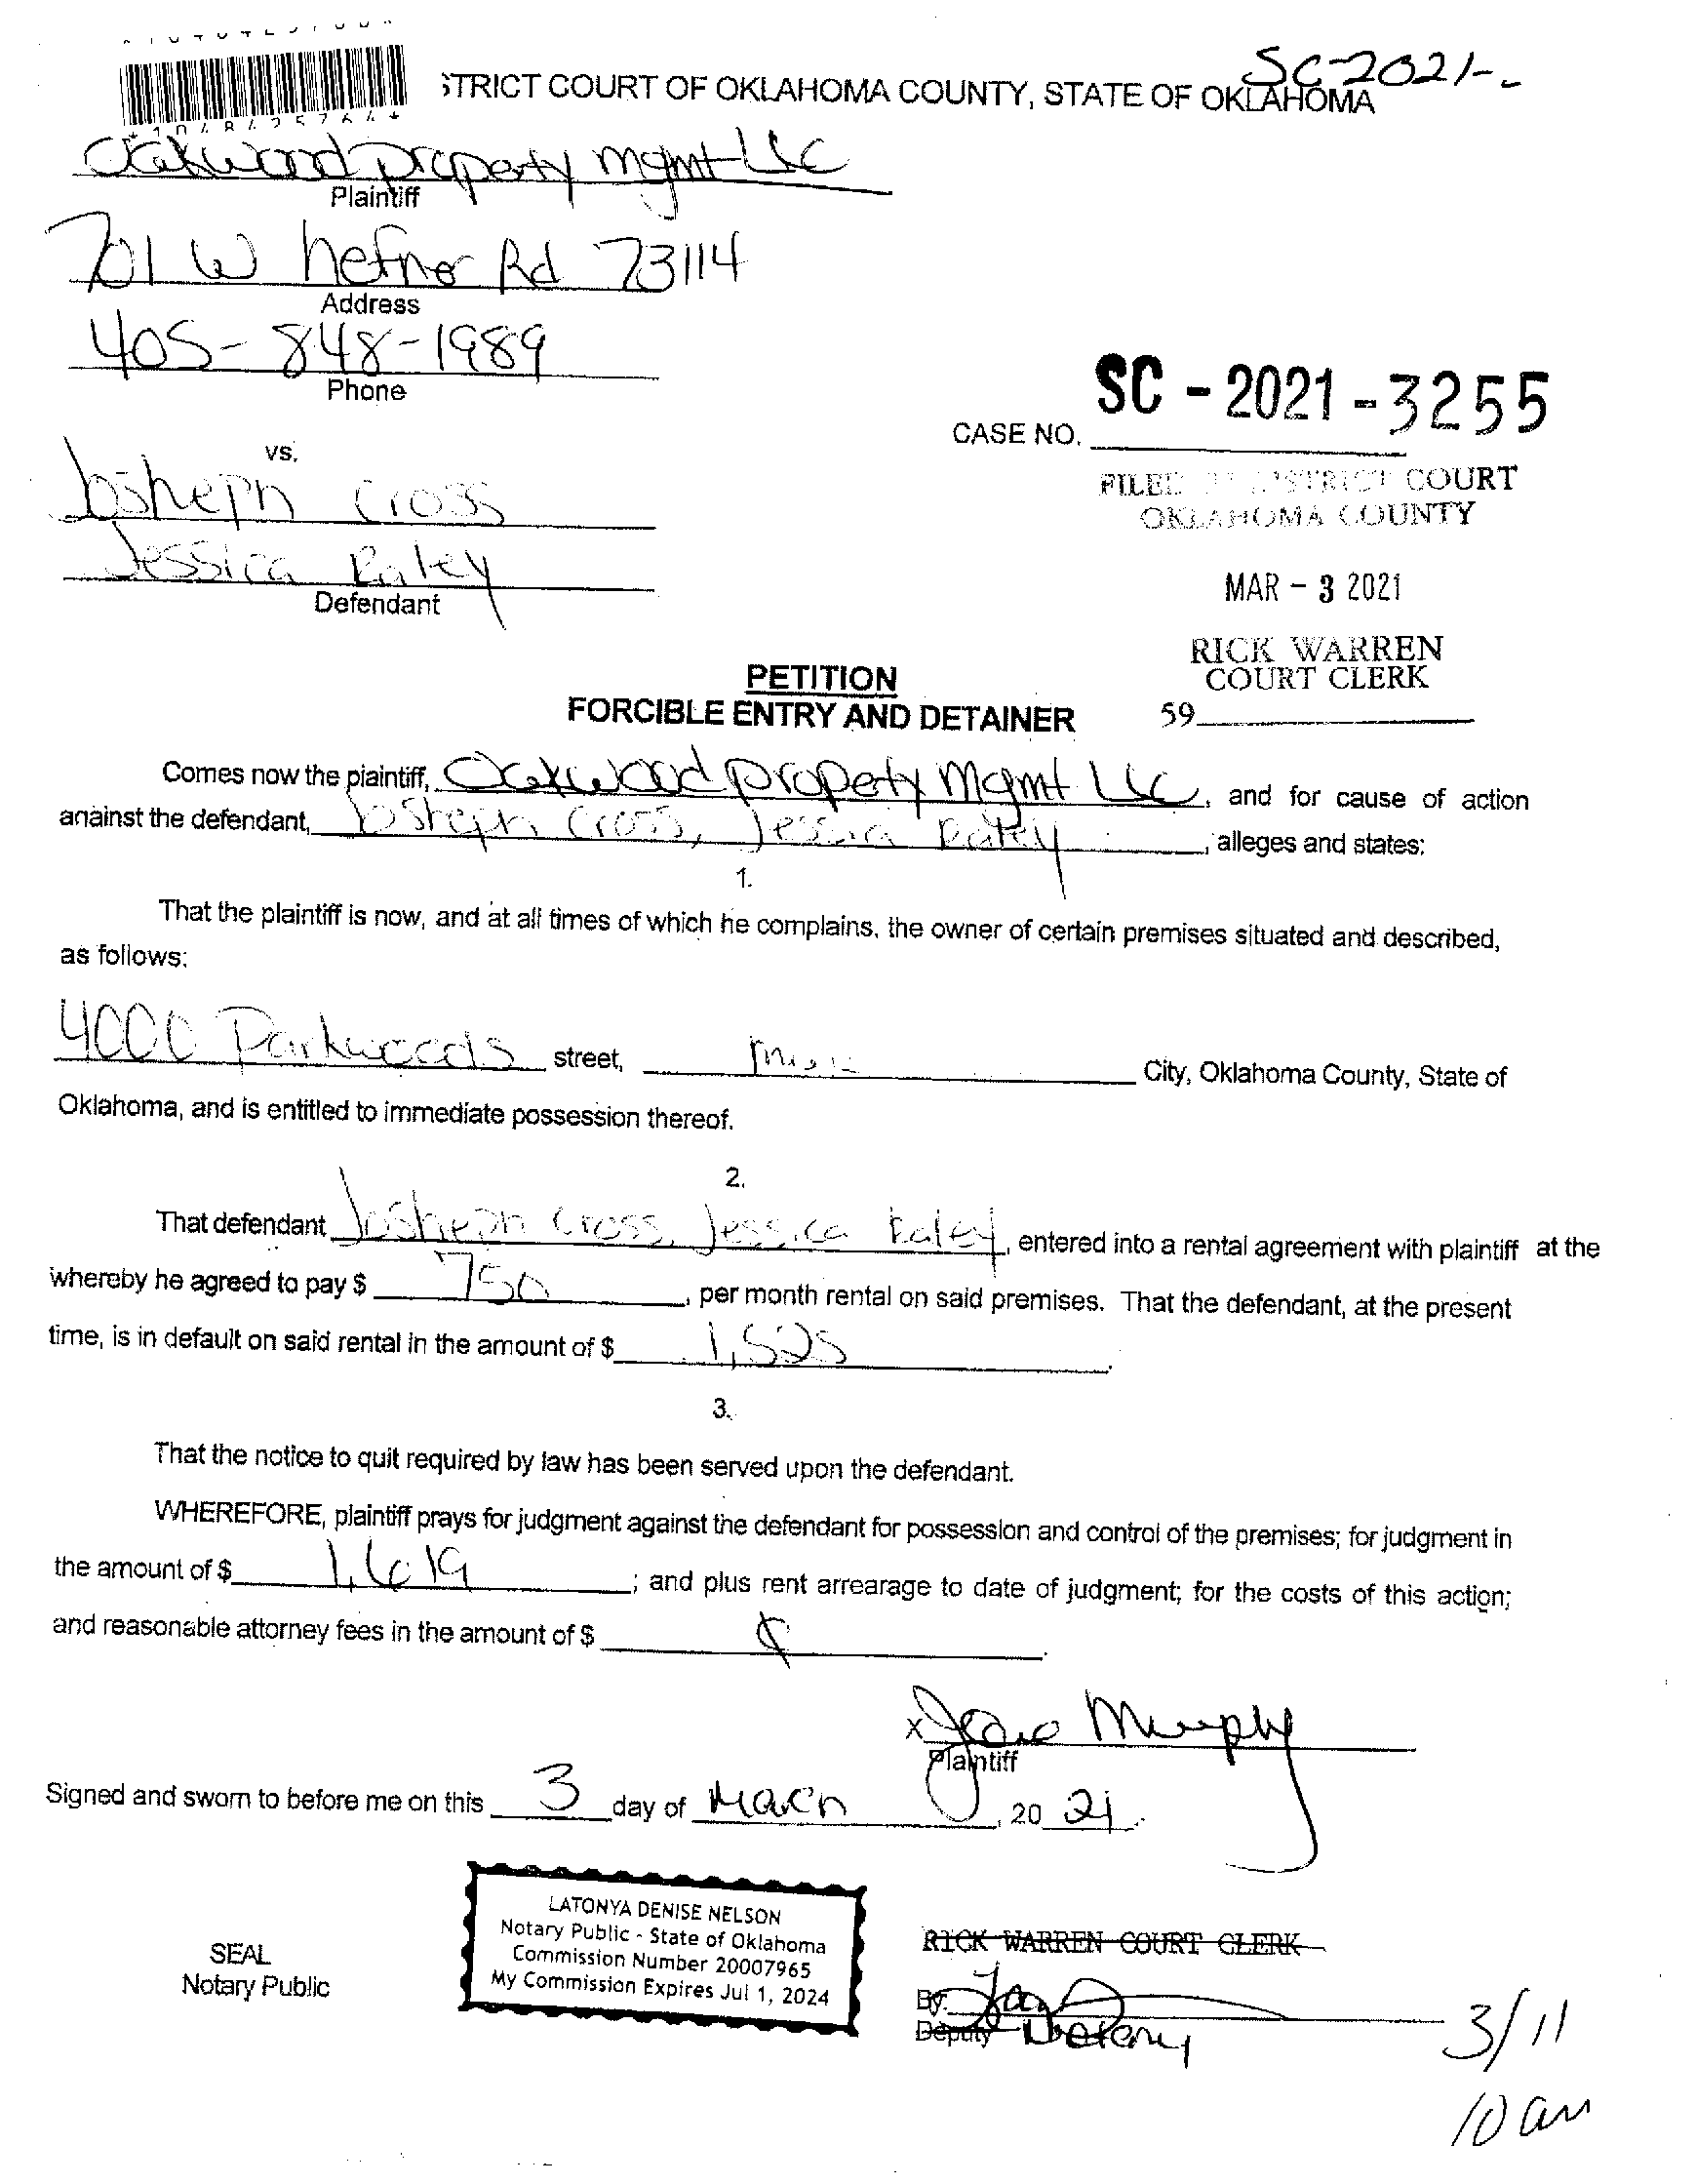 SC-2021-
STRICT COURT OF OKLAHOMA COUNTY, STATE OF OKLAHOMA
*1048425764*
Oakwood property mgmt LLC
Plaintiff
701 W hefner Rd 73114
Address
405-848-1989
Phone
SC - 2021 - 3255
CASE NO.
vs.
Josheph Cross
FILED IN DISTRICT COURT
OKLAHOMA COUNTY
Jessica Raley
Defendant
MAR - 3 2021
RICK WARREN
COURT CLERK
PETITION
FORCIBLE ENTRY AND DETAINER
59
Comes now the plaintiff, Oakwood property Mgmt LLC, and for cause of action
against the defendant, Josheph Cross, Jessica Raley, alleges and states:
1.
That the plaintiff is now, and at all times of which he complains, the owner of certain premises situated and described,
as follows:
4000 Parkwoods street, City, Oklahoma County, State of
Oklahoma, and is entitled to immediate possession thereof.
2.
That defendant Josheph Cross, Jessica Raley, entered into a rental agreement with plaintiff at the
whereby he agreed to pay $ 750, per month rental on said premises. That the defendant, at the present
time, is in default on said rental in the amount of $ 1,525.
3.
That the notice to quit required by law has been served upon the defendant.
WHEREFORE, plaintiff prays for judgment against the defendant for possession and control of the premises; for judgment in
the amount of $ 1,619; and plus rent arrearage to date of judgment; for the costs of this action;
and reasonable attorney fees in the amount of $
x Murphy
Plaintiff
Signed and sworn to before me on this 3 day of March, 20 21.
LATONYA DENISE NELSON
Notary Public - State of Oklahoma
Commission Number 20007965
My Commission Expires Jul 1, 2024
SEAL
Notary Public
RICK WARREN COURT CLERK
By:
Deputy
3/11
10 am